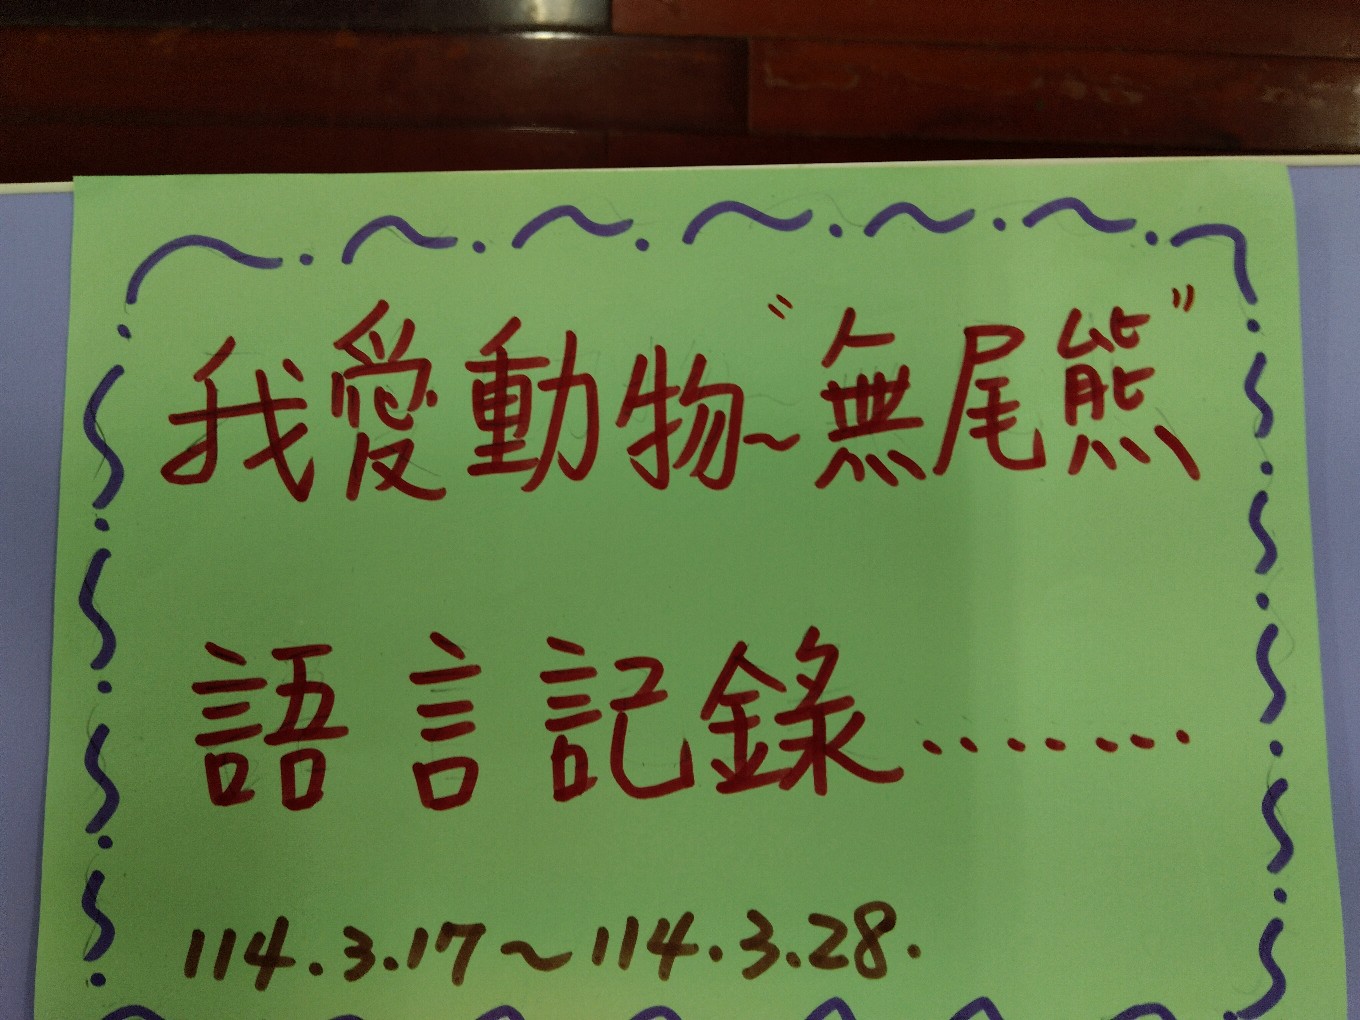 我愛動物~"無尾熊"
語言記錄.......
114.3.17~114.3.28.